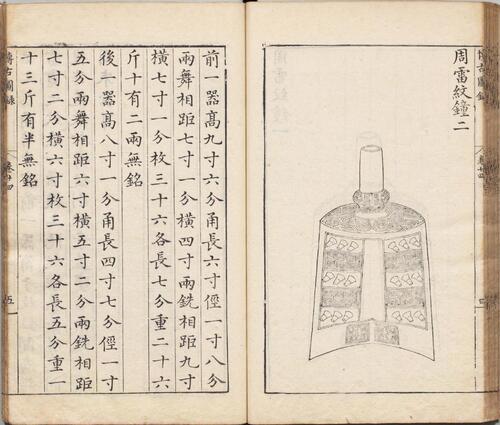 周雷紋鐘二
前一器髙九寸六分甬長六寸徑一寸八分
兩舞相距七寸一分橫四寸兩銑相距九寸
橫七寸一分枚三十六各長七分重二十六
斤十有二兩無銘
後一器髙八寸一分甬長四寸七分徑一寸
五分兩舞相距六寸橫五寸二分兩銑相距
七寸二分橫六寸枚三十六各長五分重一
十三斤有半無銘
博古圖錄
卷十四
五